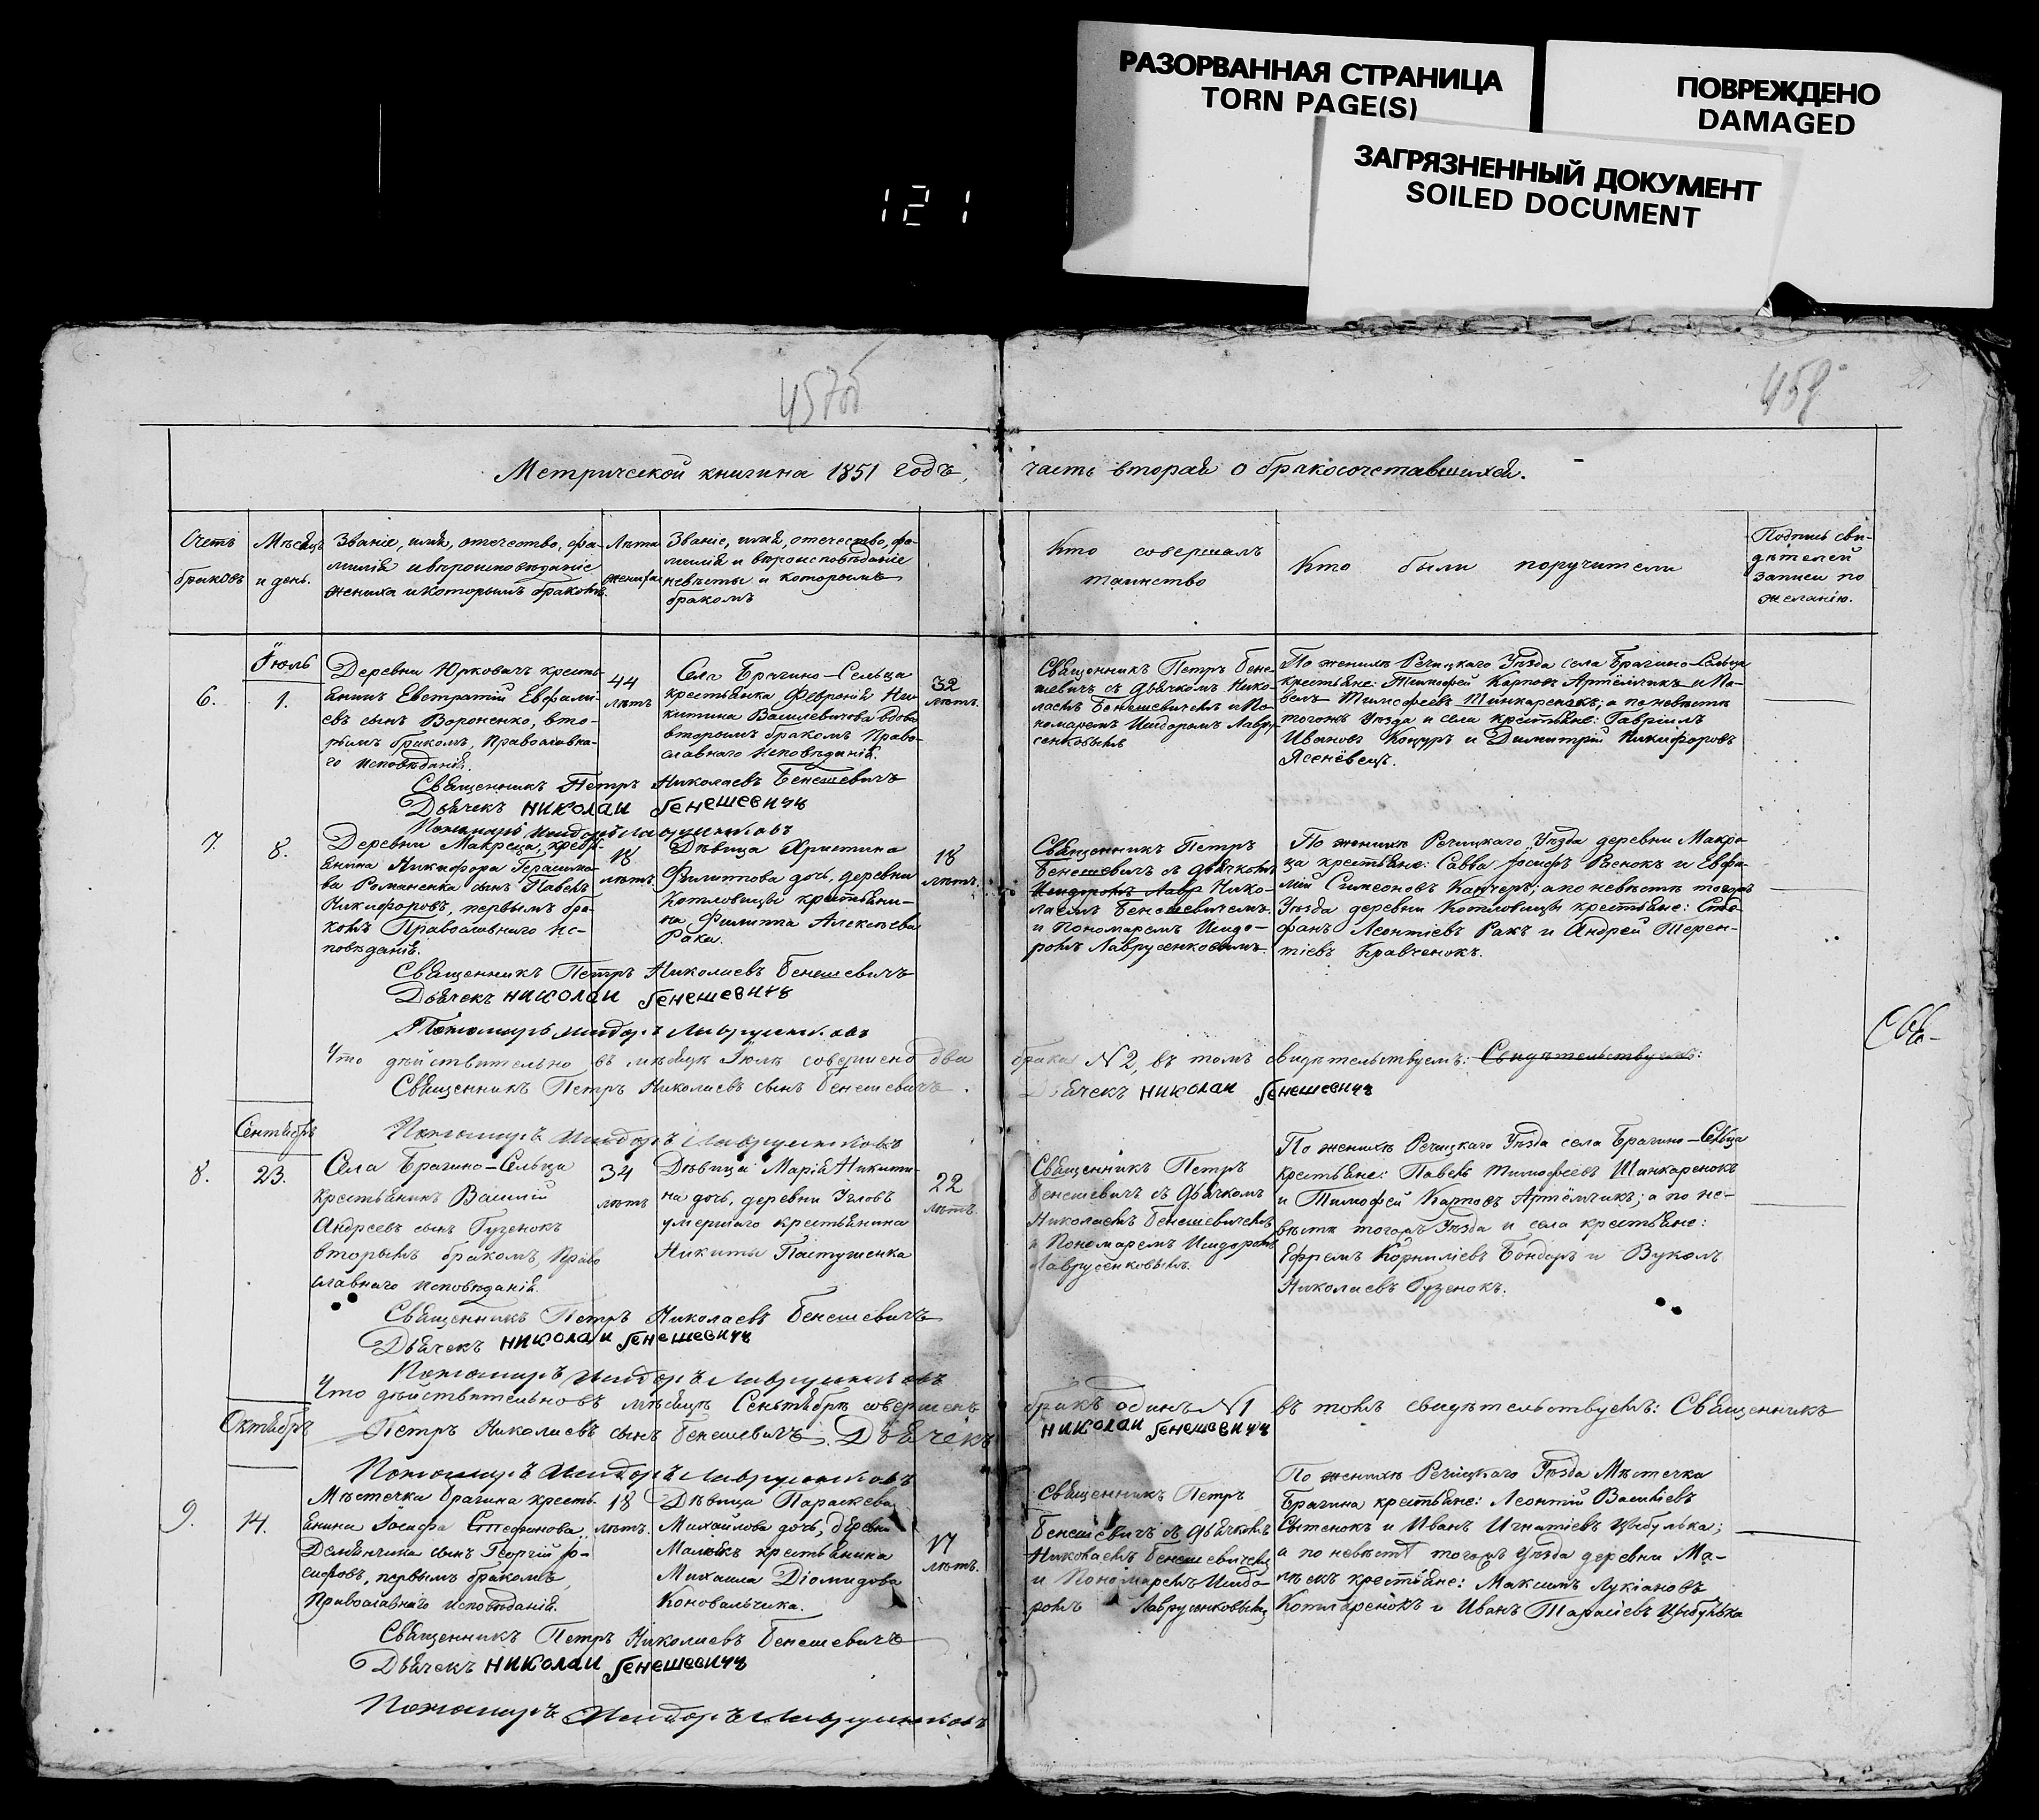 РАЗОРВАННАЯ СТРАНИЦА
TORN PAGE(S)
ПОВРЕЖДЕНО
DAMAGED
ЗАГРЯЗНЕННЫЙ ДОКУМЕНТ
SOILED DOCUMENT
121
457об
458
Метрической книги на 1851 годъ, часть вторая о бракосочетавшихся.
Счетъ браковъ
Мѣсяцъ и день.
Званіе, имя, отечество, фа-
милія и вѣроисповѣданіе
жениха и которымъ бракомъ.
Лѣта
жениха
Званіе, имя, отечество, фа-
милія и вѣроисповѣданіе
невѣсты и которымъ
бракомъ
Кто совершалъ
таинство
Кто были поручители
Подпись сви-
дѣтелей
записи по
желанію.
Іюль
6.
1.
Деревни Юрковичъ кресть-
янинъ Евстратій Евфимі-
евъ сынъ Вороненко, вто-
рымъ бракомъ, Православна-
го исповѣданія.
44
лѣтъ
Села Брагино-Сельца
крестьянка Февронія Ни-
китина Василевичова вдова
вторымъ бракомъ Право-
славнаго исповѣданія.
32
лѣтъ.
Священникъ Петръ Бене-
шевичъ съ дьячкомъ Нико-
лаемъ Бенешевичемъ и По-
номаремъ Исидоромъ Лавру-
сенковымъ
По женихѣ Рѣчицкаго Уѣзда села Брагино-Сельца
крестьяне: Тимофей Карповъ Артёмчикъ и Па-
велъ Тимофеевъ Шинкаренокъ; а по невѣстѣ
тогожъ уѣзда и села крестьяне: Гавріилъ
Ивановъ Коцуръ и Димитрій Никифоровъ
Ясенёвецъ.
Священникъ Петръ Николаевъ Бенешевичъ
Дьячекъ Николаи Бенешевичъ
Пономарь Исидоръ Лаврусенковъ
7.
8.
Деревни Макреца, кресть-
янина Никифора Герасимо-
ва Романенка сынъ Павелъ
Никифоровъ, первымъ бра-
комъ Православнаго Ис-
повѣданія.
18
лѣтъ.
Дѣвица Христина
Филиппова дочь, деревни
Котловицы крестьяни-
на Филиппа Алексѣева
Рака.
18
лѣтъ.
Священникъ Петръ
Бенешевичъ съ дьячкомъ
Исидоромъ Лавр Нико-
лаемъ Бенешевичемъ
и Пономаремъ Исидо-
ромъ Лаврусенковымъ.
По женихѣ Рѣчицкаго Уѣзда деревни Макре-
ца крестьяне: Савва Іосифъ Раенокъ и Евфи-
мій Симеоновъ Канчеръ; а по невѣстѣ тогожъ
Уѣзда деревни Котловицы крестьяне: Сте-
фанъ Леонтіевъ Ракъ и Андрей Терен-
тіевъ Кравченокъ.
Священникъ Петръ Николаевъ Бенешевичъ
Дьячекъ Николаи Бенешевичъ
Пономарь Исидоръ Лаврусенковъ
Что дѣйствительно въ мѣсяцѣ Іюлѣ совершено два брака N 2, въ томъ свидѣтельствуемъ: Свидѣтельствуемъ:
Священникъ Петръ Николаевъ сынъ Бенешевичъ. Дьячекъ Николаи Бенешевичъ
Пономарь Исидоръ Лаврусенковъ
Сентябрь
8.
23.
Села Брагино-Сельца
крестьянинъ Василій
Андреевъ сынъ Гузенокъ
вторымъ бракомъ, Право
славнаго исповѣданія.
34
лѣтъ
Дѣвица Марія Никити-
на дочь, деревни Угловъ
умершаго крестьянина
Никиты Пастушенка
22
лѣтъ.
Священникъ Петръ
Бенешевичъ съ дьячкомъ
Николаемъ Бенешевичемъ
и Пономаремъ Исидоромъ
Лаврусенковымъ.
По женихѣ Рѣчицкаго Уѣзда села Брагино-Сельца
крестьяне: Павелъ Тимофеевъ Шинкаренокъ
и Тимофей Карповъ Артёмчикъ; а по не-
вѣстѣ тогожъ Уѣзда и села крестьяне:
Ефремъ Корниліевъ Бондарь и Вуколъ
Николаевъ Гузенокъ.
Священникъ Петръ Николаевъ Бенешевичъ
Дьячекъ Николаи Бенешевичъ
Пономарь Исидоръ Лаврусенковъ
Что дѣйствительно въ мѣсяцѣ Сентябрѣ совершенъ бракъ одинъ N 1 въ томъ свидѣтельствуемъ: Священникъ
Петръ Николаевъ сынъ Бенешевичъ. Дьячекъ Николаи Бенешевичъ
Пономарь Исидоръ Лаврусенковъ
Октябрь
9.
14.
Мѣстечка Брагина кресть-
янина Іосифа Стефанова
Демьянчика сынъ Георгій Іо-
сифовъ, первымъ бракомъ,
Православнаго исповѣданія.
18
лѣтъ.
Дѣвица Параскева
Михайлова дочь, деревни
Малѣекъ крестьянина
Михаила Діомидова
Коновальчика.
17
лѣтъ.
Священникъ Петръ
Бенешевичъ съ дьячкомъ
Николаемъ Бенешевичемъ
и Пономаремъ Исидо-
ромъ Лаврусенковымъ
По женихѣ Рѣчицкаго Уѣзда Мѣстечка
Брагина крестьяне: Леонтій Василіевъ
Сытенокъ и Иванъ Игнатіевъ Цыбулька;
а по невѣстѣ тогожъ Уѣзда деревни Ма-
лѣекъ крестьяне: Максимъ Лукіановъ
Котляренокъ и Иванъ Тарасіевъ Цыбулька
Священникъ Петръ Николаевъ Бенешевичъ
Дьячекъ Николаи Бенешевичъ
Пономарь Исидоръ Лаврусенковъ